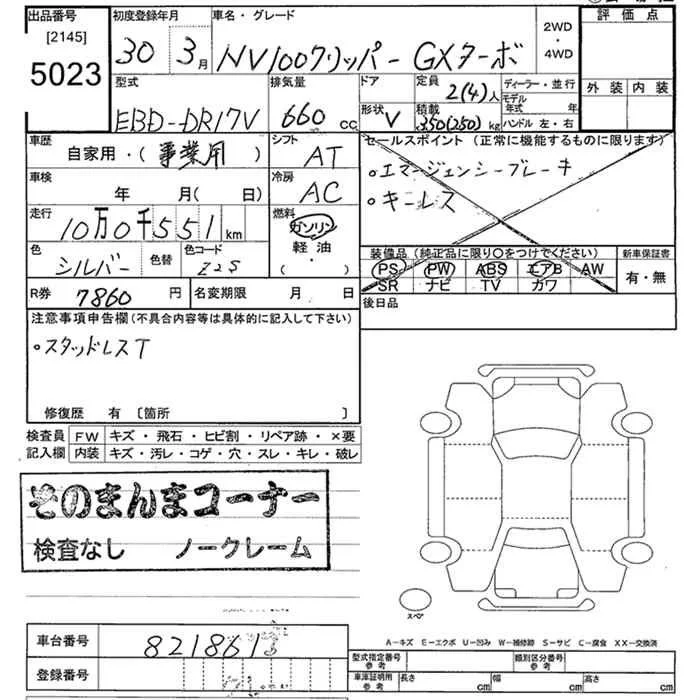 出品番号
[2145]
5023
初度登録年月
30年 3月
車名・グレード
NV100クリッパー GXターボ
2WD
・
4WD
評価点
外装 内装
型式
EBD-DR17V
排気量
660 cc
ドア
形状 V
定員
2(4)人
積載
350(250)kg
ディーラー・並行
モデル年式 年
ハンドル 左・右
車歴
自家用・(事業用)
シフト
AT
車検
年 月(日)
冷房
AC
走行
10万0千551km
燃料
ガソリン
軽油
( ・ )
色
シルバー
色替
色コード
Z2S
R券 7860円
名変期限 月 日
セールスポイント(正常に機能するものに限ります)
・エマージェンシーブレーキ
・キーレス
装備品(純正品に限り○をつけてください)
PS PW ABS エアB AW
SR ナビ TV カワ
新車保証書
有・無
後日品
注意事項申告欄(不具合内容等は具体的に記入して下さい)
・スタッドレスT
修復歴 有 [箇所 ]
検査員記入欄
FW キズ・飛石・ヒビ割・リペア跡・×要
内装 キズ・汚レ・コゲ・穴・スレ・キレ・破レ
そのまんまコーナー
検査なし ノークレーム
スペア
A-キズ E-エクボ U-凹み W-補修跡 S-サビ C-腐食 XX-交換済
車台番号 821861
登録番号
型式指定番号 参考
類別区分番号 参考
車庫証明用 参考
長さ cm 幅 cm 高さ cm